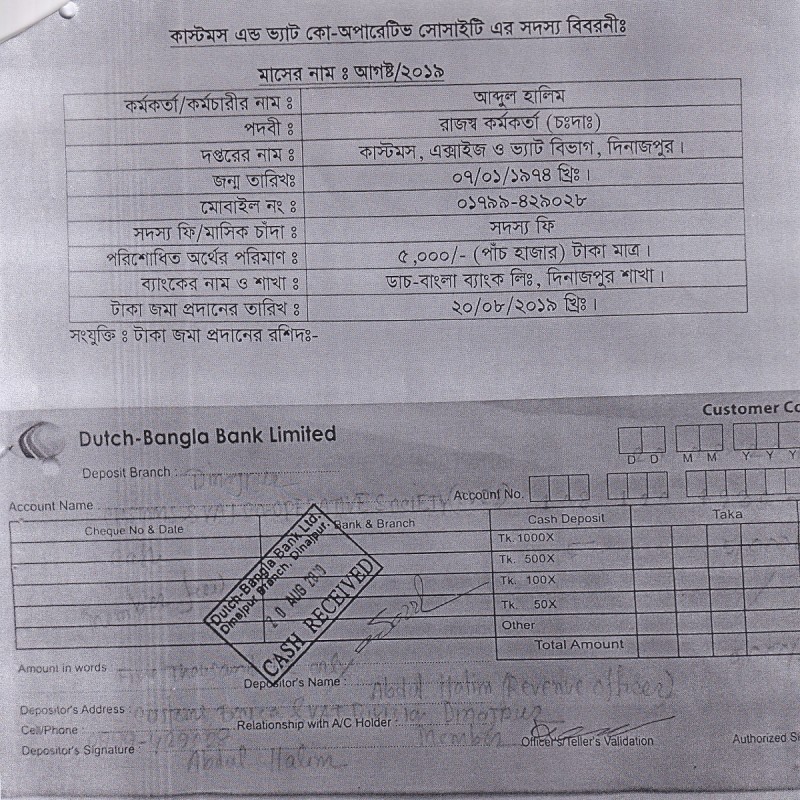 কাস্টমস এন্ড ভ্যাট কো-অপারেটিভ সোসাইটি এর সদস্য বিবরনীঃ
মাসের নাম ঃ আগষ্ট/২০১৯
কর্মকর্তা/কর্মচারীর নাম ঃ আব্দুল হালিম
পদবী ঃ রাজস্ব কর্মকর্তা (চঃদাঃ)
দপ্তরের নাম ঃ কাস্টমস, এক্সাইজ ও ভ্যাট বিভাগ, দিনাজপুর।
জন্ম তারিখঃ ০৭/০১/১৯৭৪ খ্রিঃ।
মোবাইল নং ঃ ০১৭৯৯-৪২৯০২৮
সদস্য ফি/মাসিক চাঁদা ঃ সদস্য ফি
পরিশোধিত অর্থের পরিমাণ ঃ ৫,০০০/- (পাঁচ হাজার) টাকা মাত্র।
ব্যাংকের নাম ও শাখা ঃ ডাচ-বাংলা ব্যাংক লিঃ, দিনাজপুর শাখা।
টাকা জমা প্রদানের তারিখ ঃ ২০/০৮/২০১৯ খ্রিঃ।
সংযুক্তি ঃ টাকা জমা প্রদানের রশিদঃ-
Customer Co
Dutch-Bangla Bank Limited
D D M M Y Y Y
Deposit Branch : Dinajpur
Account No.
Account Name
Cheque No & Date Bank & Branch Cash Deposit Taka
Tk. 1000X
Tk. 500X
Tk. 100X
Tk. 50X
Other
Total Amount
Dutch-Bangla Bank Ltd.
Dinajpur Branch. Dinajpur.
20 AUG 2019
CASH RECEIVED
Amount in words : only
Depositor's Name : Abdul Halim (Revenue officer)
Depositor's Address : Dinajpur
Cell/Phone : Relationship with A/C Holder : Member
Depositor's Signature : Abdul Halim
Officer's/Teller's Validation Authorized Si